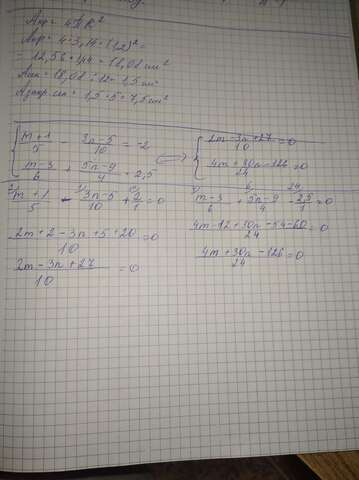 Aкр = 4πR²
Aкр = 4·3,14·(1,2)² =
= 12,56·1,44 = 18,08 см²
= 18,08 : 12 = 1,5 см²
= 1,5·5 = 7,5 см²
{ (m+1)/5 - (3n-5)/10 = -2
(m-3)/6 + (5n-9)/4 = 2,5
⟺ { (2m-3n+27)/10 = 0
(4m+30n-126)/24 = 0
(m+1)/5 - (3n-5)/10 + 2/1 = 0
(2m+2-3n+5+20)/10 = 0
(2m-3n+27)/10 = 0
(m-3)/6 + (5n-9)/4 - 2,5/1 = 0
(4m-12+30n-54-60)/24 = 0
(4m+30n-126)/24 = 0